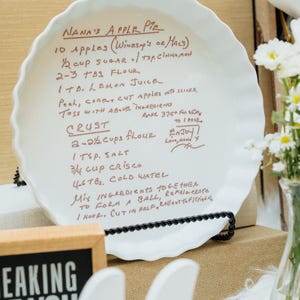 Nana's Apple Pie
10 Apples (Winesap's or/Macs)
1/2 cup sugar + 1 tsp cinnamon
2-3 TBS Flour
1 TB. Lemon Juice
Peel, core + cut apples into slices
Toss with above ingredients
Bake 375° for 50
to 1 hour
Crust
2-2 1/2 cups flour
Enjoy!
1 tsp. salt
3/4 cup Crisco
4-6 TBS. cold water
Mix ingredients together
to form a ball, refrigerate
1 hour. Cut in half,
EAKING